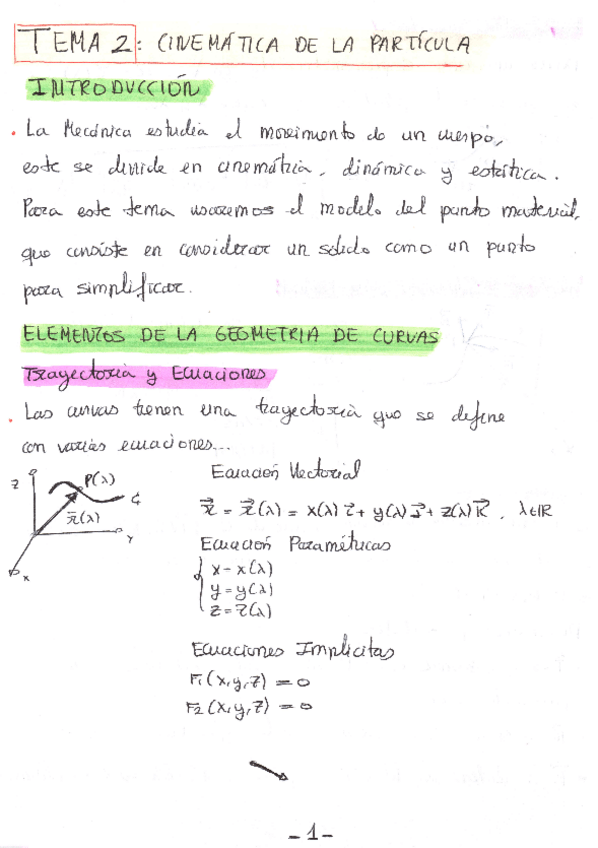 TEMA 2: CINEMÁTICA DE LA PARTÍCULA
INTRODUCCIÓN
. La Mecánica estudia el movimiento de un cuerpo,
este se divide en cinemática, dinámica y estática.
Para este tema usaremos el modelo del punto material,
que consiste en considerar un sólido como un punto
para simplificar.
ELEMENTOS DE LA GEOMETRIA DE CURVAS
Trayectoria y Ecuaciones
. Las curvas tienen una trayectoria que se define
con varias ecuaciones...
Z P(λ) C
r⃗(λ)
Y
X
Ecuación Vectorial
r⃗ = r⃗(λ) = x(λ) i⃗ + y(λ) j⃗ + z(λ) k⃗ . λ∈ℝ
Ecuación Paramétricas
x = x(λ)
y = y(λ)
z = z(λ)
Ecuaciones Implicitas
F1(x,y,z) = 0
F2(x,y,z) = 0
-1-